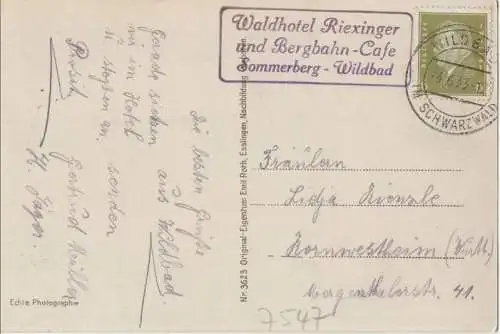 Waldhotel Riexinger
und Bergbahn-Cafe
Sommerberg - Wildbad
WILDBAD
IM SCHWARZWALD
Die besten Grüße
aus Wildbad
senden
Gerade sitzen
wir im Hotel
u. stoßen an.
Prosit.
Gertrud Müller
H. Jäger.
Nr. 3623 Original-Eigentum Emil Roth, Esslingen, Nachbildung verboten.
Fräulein
Lidja Kienzle
Kornwestheim (Württ.)
Morgenthalerstr. 41.
Echte Photographie
7547